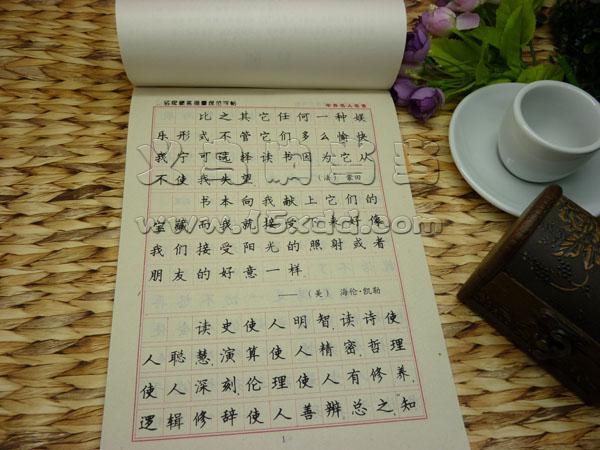 中外名人名言
比之其它任何一种娱
乐形式不管它们多么愉快
我宁可选择读书因为它从
不使我失望。
(法) 蒙田
书本向我献上它们的
宝藏而我就接受下来好像
我们接受阳光的照射或者
朋友的好意一样.
——(美) 海伦·凯勒
读史使人明智,读诗使
人聪慧,演算使人精密,哲理
使人深刻,伦理使人有修养,
逻辑修辞使人善辨.总之,知
1
www.15xdd.com